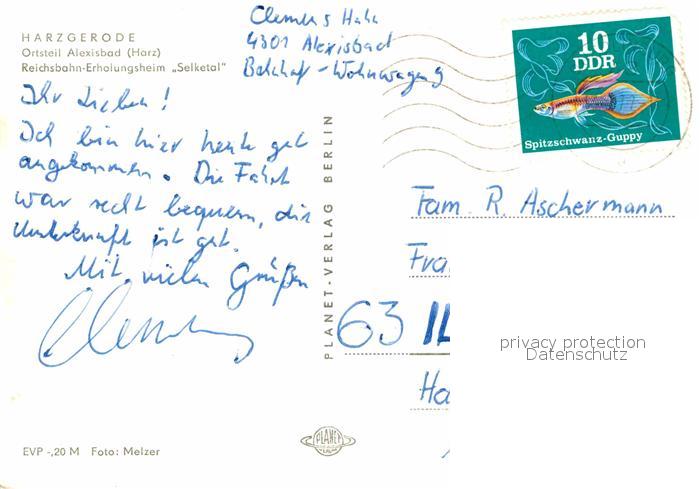 HARZGERODE
Ortsteil Alexisbad (Harz)
Reichsbahn-Erholungsheim „Selketal"
Clemens Hahn
4301 Alexisbad
Bahnhof - Wohnwagen 9
Ihr Lieben!
Ich bin hier heute gut
angekommen. Die Fahrt
war recht bequem, die
Unterkunft ist gut.
Mit vielen Grüßen
Clemens
10
DDR
Spitzschwanz-Guppy
Fam. R. Aschermann
Fra
63 IL
Ha
privacy protection
Datenschutz
PLANET-VERLAG BERLIN
PLANET
EVP -,20 M Foto: Melzer